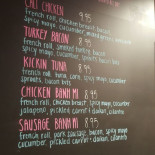 CALI CHICKEN 8.95
french roll, chicken breast, bacon,
spicy mayo, cucumber, mixed greens, avocado
TURKEY BACON 8.95
french roll, smoked turkey
spicy mayo, cucumber
KICKIN TUNA 8.95
french roll, tuna, corn, spicy mayo, cucumber
CHICKEN BANH MI 8.95
french roll, chicken breast, spicy mayo, cucumber
jalapeño, pickled carrot + daikon, cilantro
SAUSAGE BANH MI 8.95
french roll, pork sausage, bacon, spicy mayo
cucumber, pickled carrot + daikon, cilantro